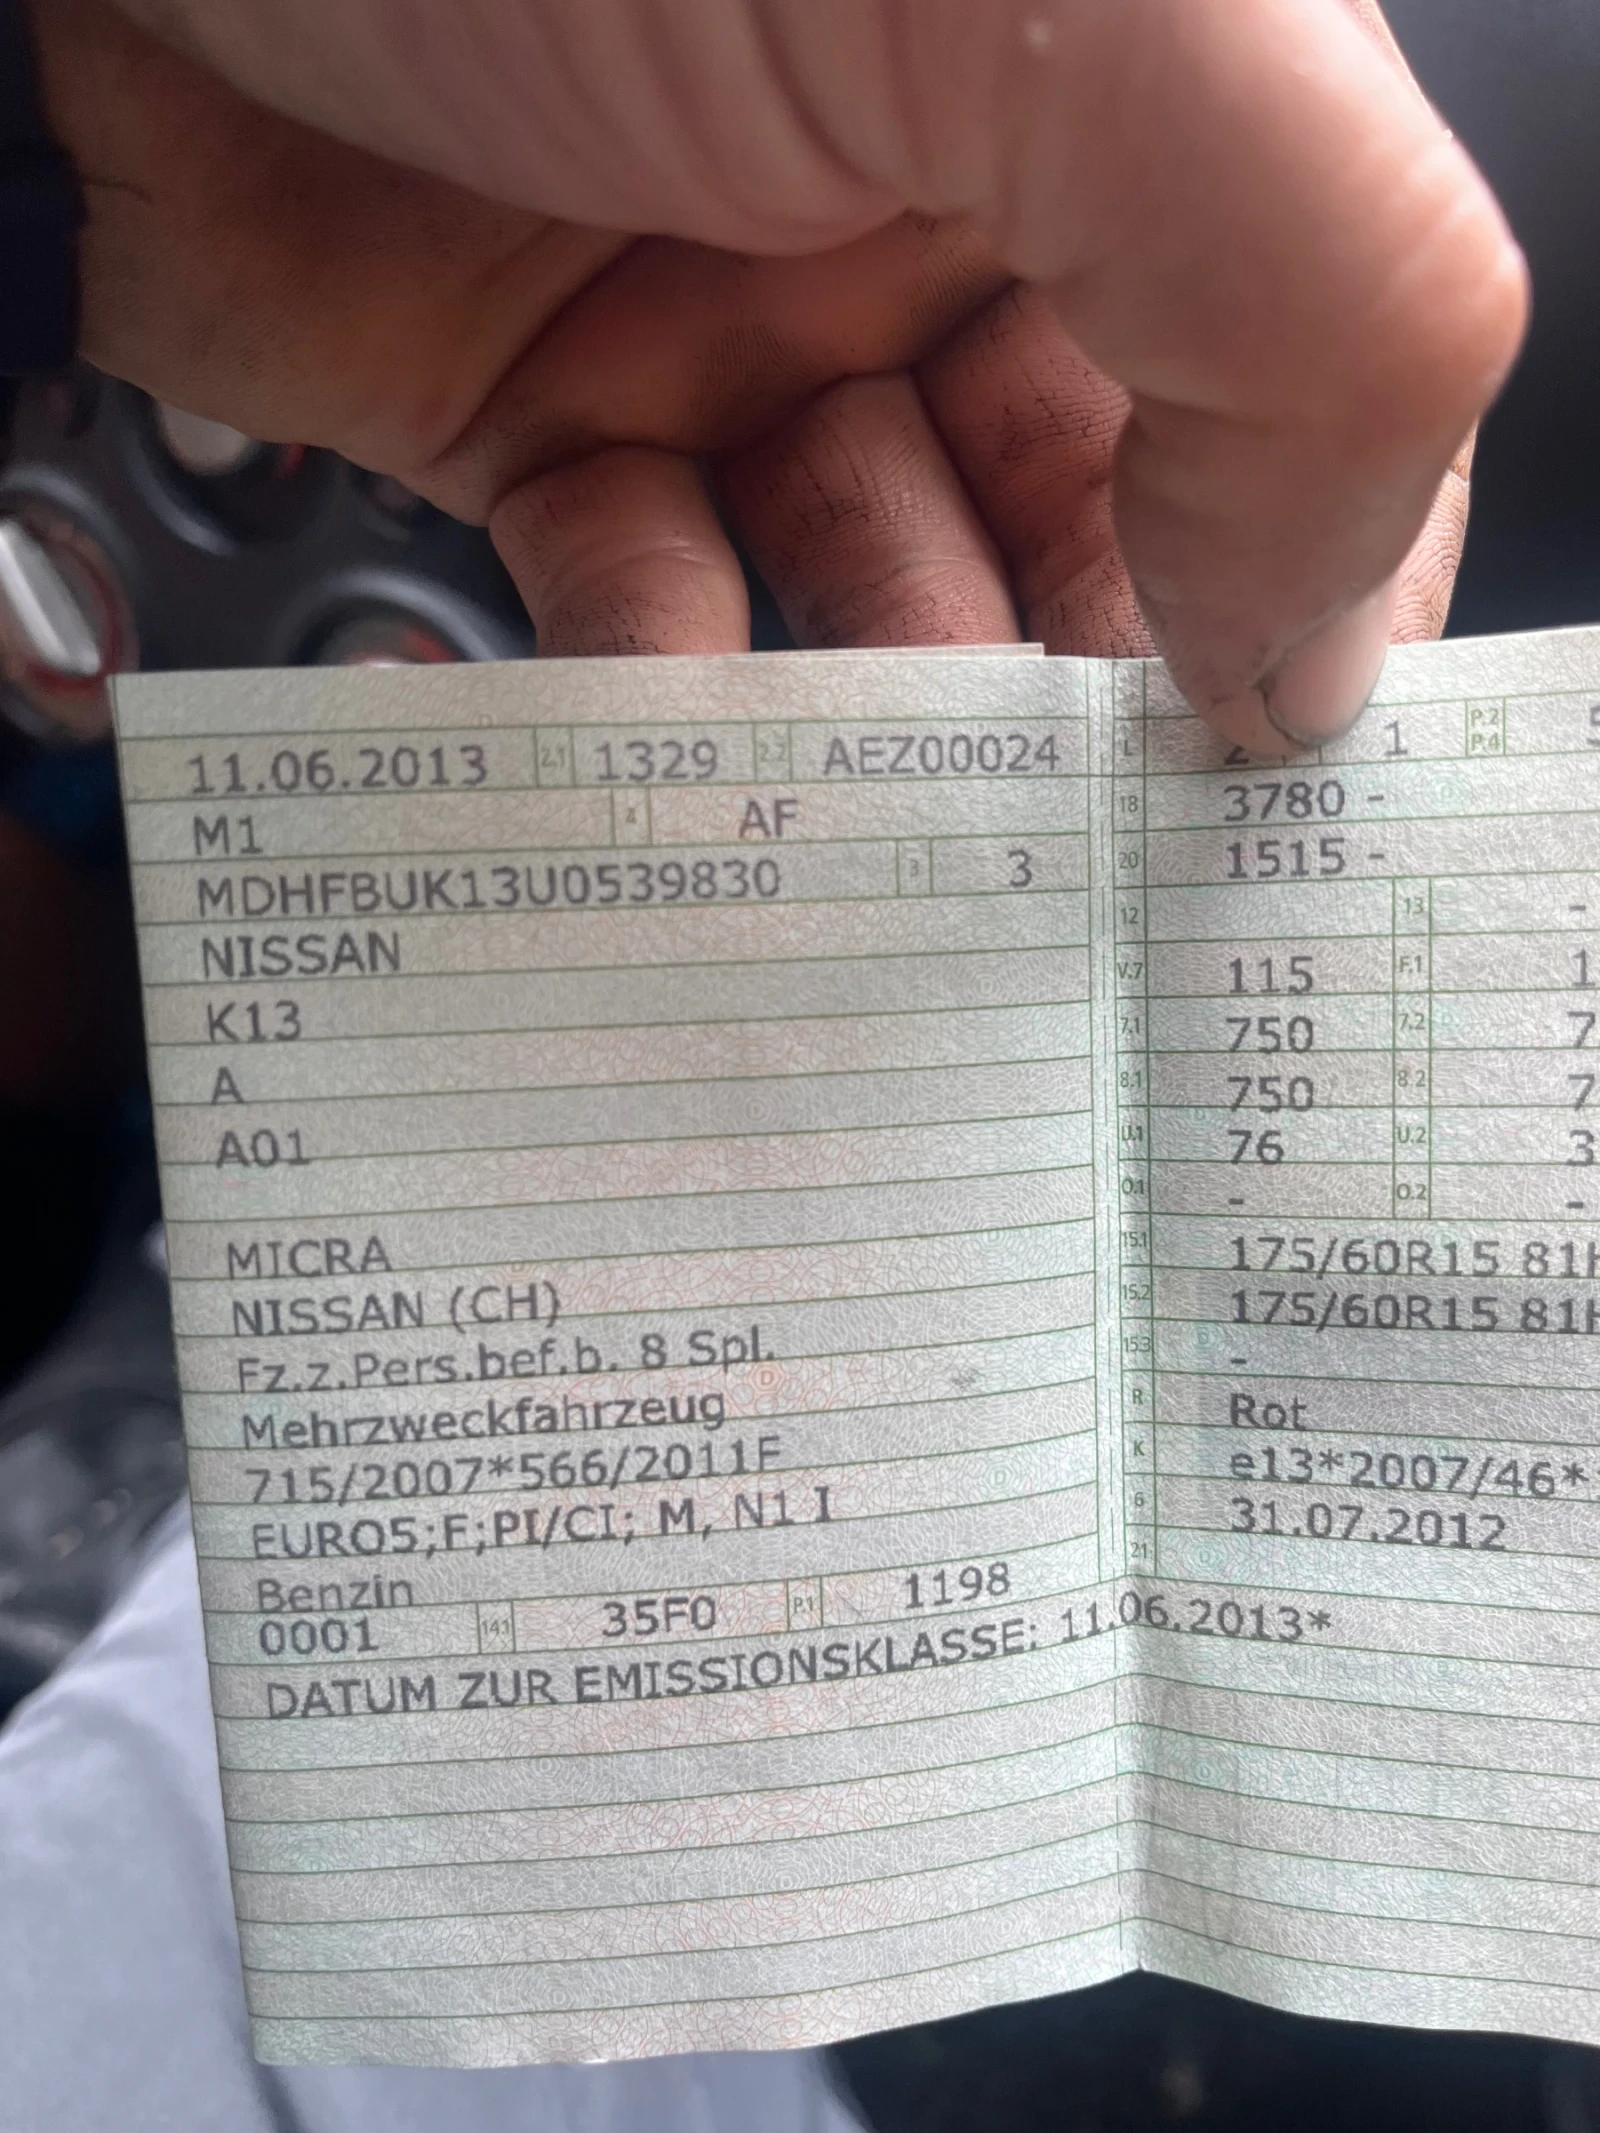 11.06.2013 2.1 1329 2.2 AEZ00024
M1 4 AF
MDHFBUK13U0539830 3 3
NISSAN
K13
A
A01
MICRA
NISSAN (CH)
Fz.z.Pers.bef.b. 8 Spl.
Mehrzweckfahrzeug
715/2007*566/2011F
EURO5;F;PI/CI; M, N1 I
Benzin
0001 14.1 35F0 P.1 1198
DATUM ZUR EMISSIONSKLASSE: 11.06.2013*
L 2 1 P.2 P.4
18 3780 -
20 1515 -
12 13 -
V.7 115 F.1 1
7.1 750 7.2 7
8.1 750 8.2 7
U.1 76 U.2 3
O.1 - O.2 -
15.1 175/60R15 81H
15.2 175/60R15 81H
15.3 -
R Rot
K e13*2007/46*
6 31.07.2012
21